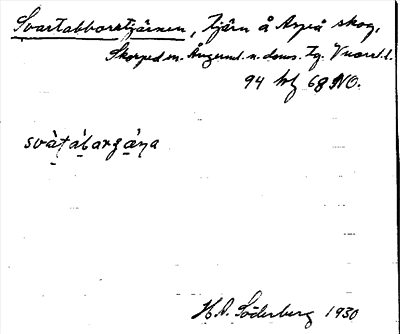 Svartabborrtjärnen, tjärn å Aspeå skog,
Skorped sn. Ångerml. n. doms. tg.
94 68 NO.
svàṭábarɟä̀ṇa
H. D. Söderberg 1930